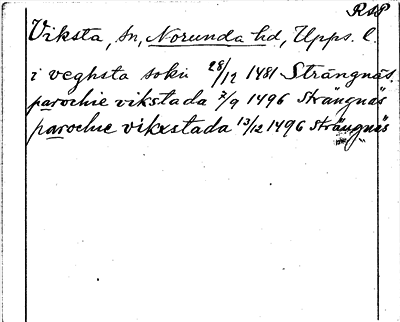 RAP
Viksta, sn, Norunda hd, Upps. l.
i veghsta sokn 28/12 1481 Strängnäs.
parochie vikstada 7/9 1496 Strängnäs
parochie vikxstada 13/12 1496 Strängnäs